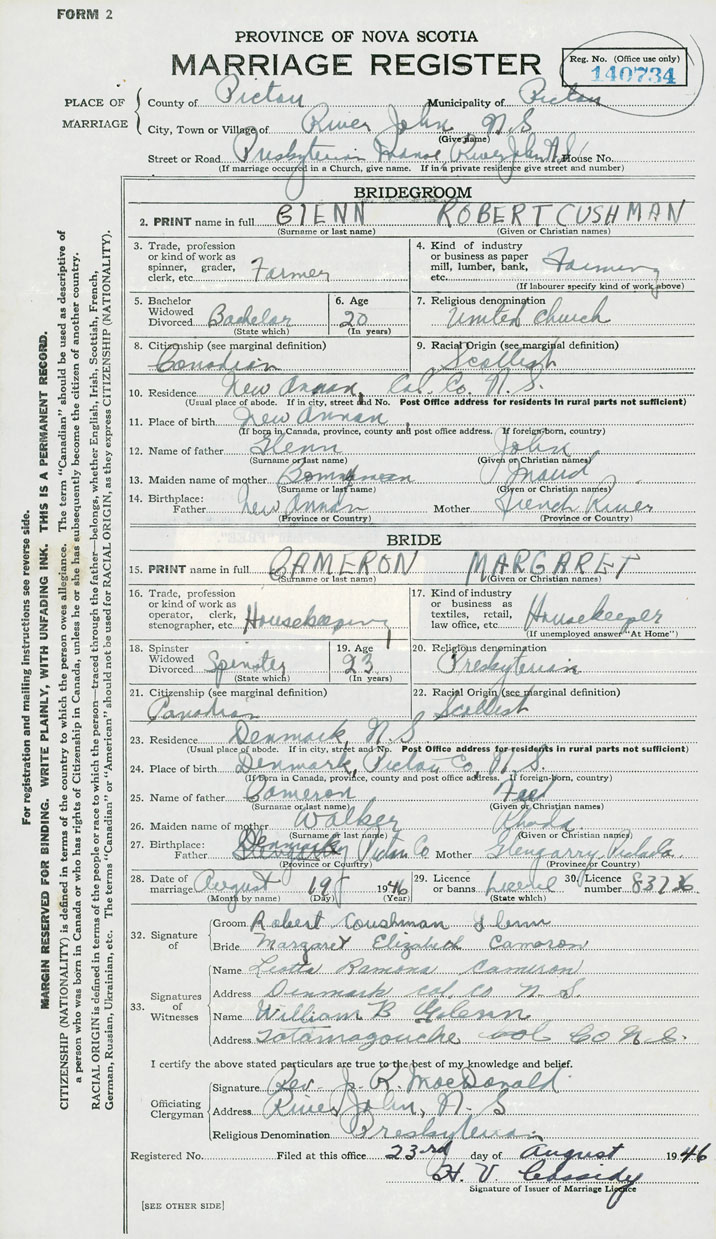 FORM 2
PROVINCE OF NOVA SCOTIA
MARRIAGE REGISTER
Reg. No. (Office use only)
140734
PLACE OF MARRIAGE
County of Pictou Municipality of Pictou
City, Town or Village of River John N.S
(Give name)
Street or Road Presbyterian Manse River John N.S. House No.
(If marriage occurred in a Church, give name. If in a private residence give street and number)
BRIDEGROOM
2. PRINT name in full GLENN ROBERT CUSHMAN
(Surname or last name) (Given or Christian names)
3. Trade, profession or kind of work as spinner, grader, clerk, etc. Farmer
4. Kind of industry or business as paper mill, lumber, bank, etc. Farming
(If labourer specify kind of work above)
5. Bachelor Widowed Divorced Bachelor
(State which)
6. Age 20
(In years)
7. Religious denomination United Church
8. Citizenship (see marginal definition) Canadian
9. Racial Origin (see marginal definition) Scottish
10. Residence New Annan, Col. Co. N.S.
(Usual place of abode. If in city, street and No. Post Office address for residents in rural parts not sufficient)
11. Place of birth New Annan
(If born in Canada, province, county and post office address. If foreign-born, country)
12. Name of father Glenn John
(Surname or last name) (Given or Christian names)
13. Maiden name of mother Maud
(Surname or last name) (Given or Christian names)
14. Birthplace: Father New Annan Mother French River
(Province or Country) (Province or Country)
BRIDE
15. PRINT name in full CAMERON MARGARET
(Surname or last name) (Given or Christian names)
16. Trade, profession or kind of work as operator, clerk, stenographer, etc. Housekeeping
17. Kind of industry or business as textiles, retail, law office, etc. Housekeeper
(If unemployed answer "At Home")
18. Spinster Widowed Divorced Spinster
(State which)
19. Age 23
(In years)
20. Religious denomination Presbyterian
21. Citizenship (see marginal definition) Canadian
22. Racial Origin (see marginal definition) Scottish
23. Residence Denmark, N.S.
(Usual place of abode. If in city, street and No. Post Office address for residents in rural parts not sufficient)
24. Place of birth Denmark, Pictou Co, N.S.
(If born in Canada, province, county and post office address. If foreign-born, country)
25. Name of father Cameron
(Surname or last name) (Given or Christian names)
26. Maiden name of mother Walker Rhoda
(Surname or last name) (Given or Christian names)
27. Birthplace: Father Denmark Pictou Co Mother Glengarry
(Province or Country) (Province or Country)
28. Date of marriage August 19 1946
(Month by name) (Day) (Year)
29. Licence or banns License
(State which)
30. Licence number 83736
32. Signature of
Groom Robert Coushman Glenn
Bride Margaret Elizabeth Cameron
33. Signatures of Witnesses
Name Ramona Cameron
Address Denmark Col. Co N.S.
Name William B Glenn
Address Tatamagouche Col Co N.S.
I certify the above stated particulars are true to the best of my knowledge and belief.
Officiating Clergyman
Signature Rev. J. R. MacDonald
Address River John, N.S
Religious Denomination Presbyterian
Registered No. Filed at this office 23rd day of August 1946
H. V. Cassidy
Signature of Issuer of Marriage Licence
[SEE OTHER SIDE]
For registration and mailing instructions see reverse side.
MARGIN RESERVED FOR BINDING. WRITE PLAINLY, WITH UNFADING INK. THIS IS A PERMANENT RECORD.
CITIZENSHIP (NATIONALITY) is defined in terms of the country to which the person owes allegiance. The term "Canadian" should be used as descriptive of
a person who was born in Canada or who has rights of Citizenship in Canada, unless he or she has subsequently become the citizen of another country.
RACIAL ORIGIN is defined in terms of the people or race to which the person—traced through the father—belongs, whether English, Irish, Scottish, French,
German, Russian, Ukrainian, etc. The terms "Canadian" or "American" should not be used for RACIAL ORIGIN, as they express CITIZENSHIP (NATIONALITY).